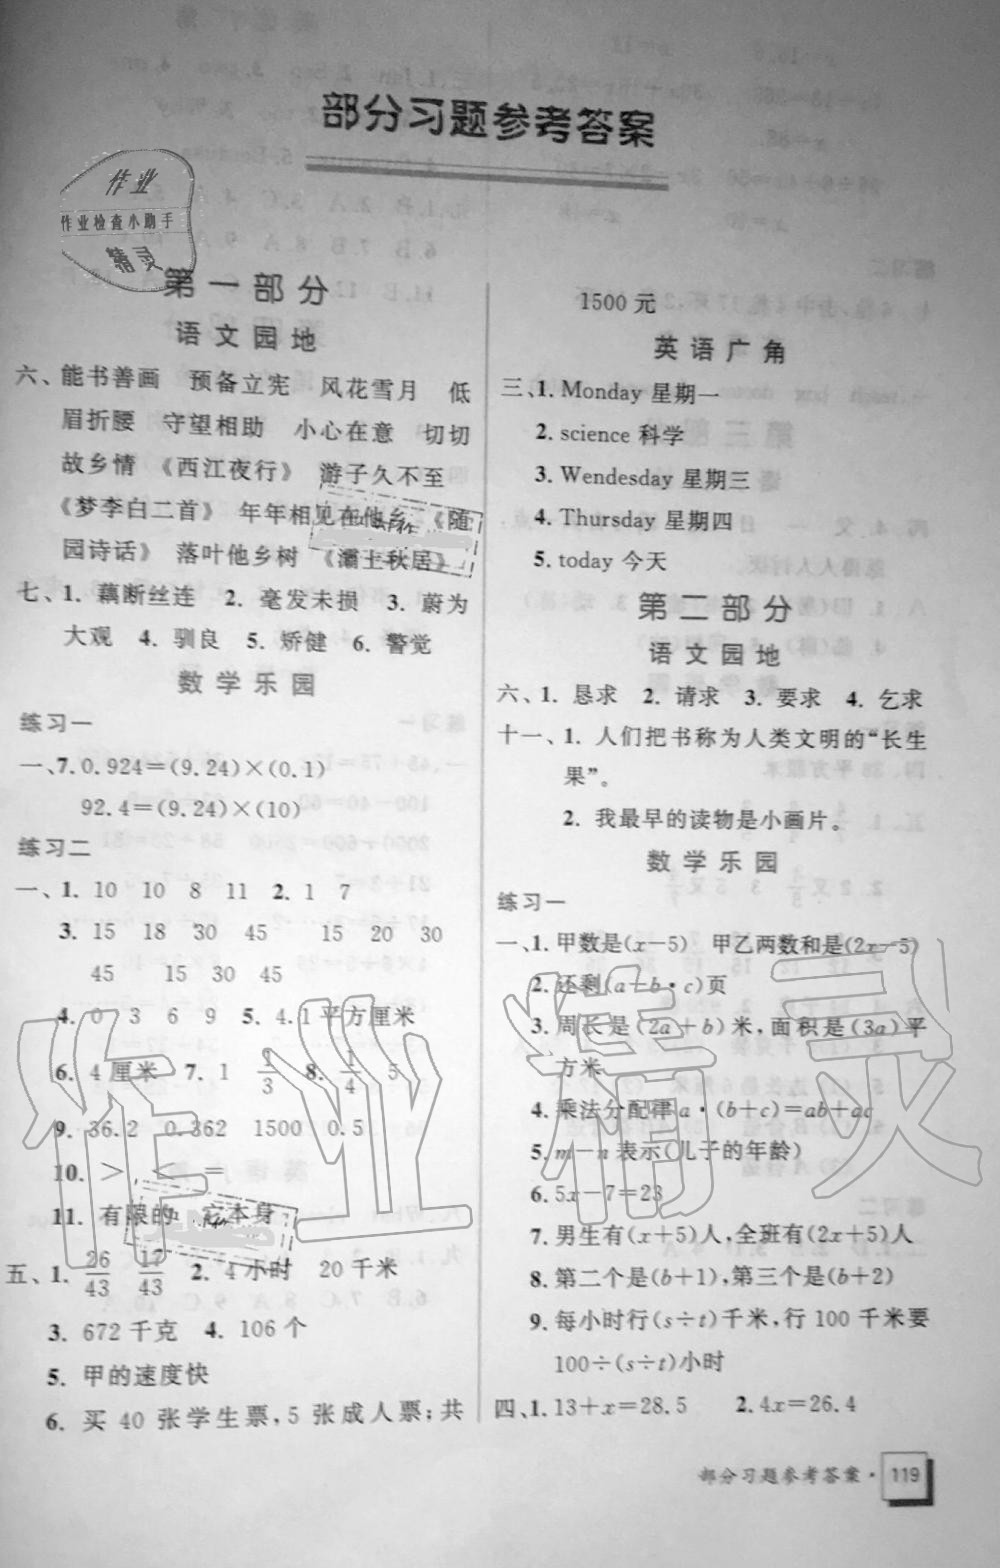 部分习题参考答案
作业
作业检查小助手
精灵
第一部分
语文园地
六、能书善画 预备立宪 风花雪月 低
眉折腰 守望相助 小心在意 切切
故乡情 《西江夜行》 游子久不至
《梦李白二首》 年年相见在他乡 《随
园诗话》 落叶他乡树 《灞上秋居》
七、1. 藕断丝连 2. 毫发未损 3. 蔚为
大观 4. 驯良 5. 矫健 6. 警觉
数学乐园
练习一
一、7. 0.924=(9.24)×(0.1)
92.4=(9.24)×(10)
练习二
一、1. 10 10 8 11 2. 1 7
3. 15 18 30 45 15 20 30
45 15 30 45
4. 0 3 6 9 5. 4.1平方厘米
6. 4厘米 7. 1 1/3 8. 1/4 5
9. 36.2 0.362 1500 0.5
10. > < =
11. 有限的 它本身
五、1. 26/43 17/43 2. 4小时 20千米
3. 672千克 4. 106个
5. 甲的速度快
6. 买40张学生票,5张成人票;共
1500元
英语广角
三、1. Monday 星期一
2. science 科学
3. Wendesday 星期三
4. Thursday 星期四
5. today 今天
第二部分
语文园地
六、1. 恳求 2. 请求 3. 要求 4. 乞求
十一、1. 人们把书称为人类文明的“长生
果”。
2. 我最早的读物是小画片。
数学乐园
练习一
一、1. 甲数是(x-5) 甲乙两数和是(2x-5)
2. 还剩(a-b·c)页
3. 周长是(2a+b)米,面积是(3a)平
方米
4. 乘法分配律a·(b+c)=ab+ac
5. m-n表示(儿子的年龄)
6. 5x-7=23
7. 男生有(x+5)人,全班有(2x+5)人
8. 第二个是(b+1),第三个是(b+2)
9. 每小时行(s÷t)千米,行100千米要
100÷(s÷t)小时
四、1. 13+x=28.5 2. 4x=26.4
部分习题参考答案·119
作业精灵